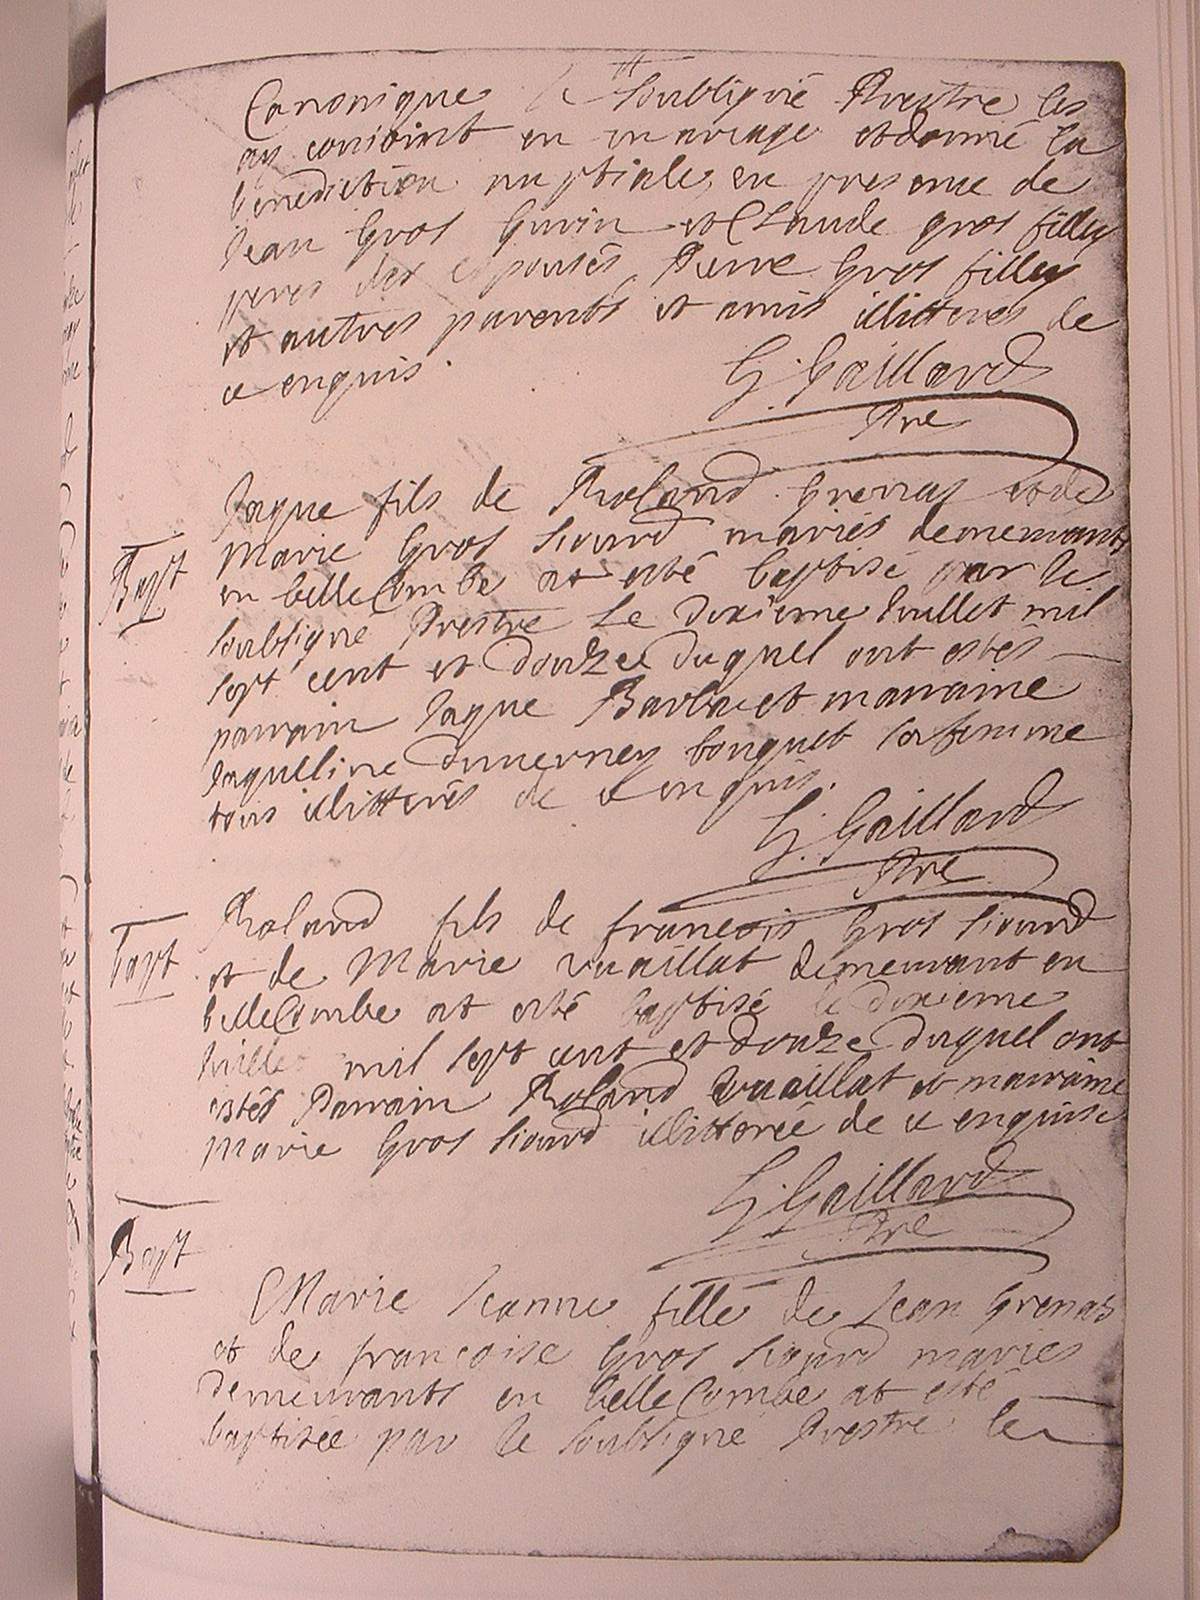 Canonique le soubsigné Prestre les
ay conioint en mariage et donné la
benediction nuptiale, en presence de
Jean Gros Gurin et Claude gros filley
peres des espousés, Pierre Gros filley
et autres parents et amis illitteres de
ce enquis.
G. Gaillard
Pre
Bapt
Jaque fils de Roland Grenas et de
Marie Gros Siourd mariés demeurants
en belleCombe at esté baptisé par le
soubsigné Prestre Le dixieme Juillet mil
sept cent et douze duquel ont estés
parrain Jaque Barba et marraine
Jaquelline dunerney bouquet sa femme
tous illitterés de ce enquis.
G. Gaillard
Pre
bapt
Roland fils de francois Gros Siourd
et de Marie vuaillat demeurant en
belleCombe at esté baptisé le dixieme
Juillet mil sept cent et douze duquel ont
estés Parrain Roland vuaillat et marraine
Marie Gros Siourd illitterée de ce enquise
G. Gaillard
Pre
Bapt
Marie Jeanne fille de Jean Grenas
et de françoise Gros Siourd mariés
demeurants en belleCombe at esté
baptisée par le soubsigné Prestre le